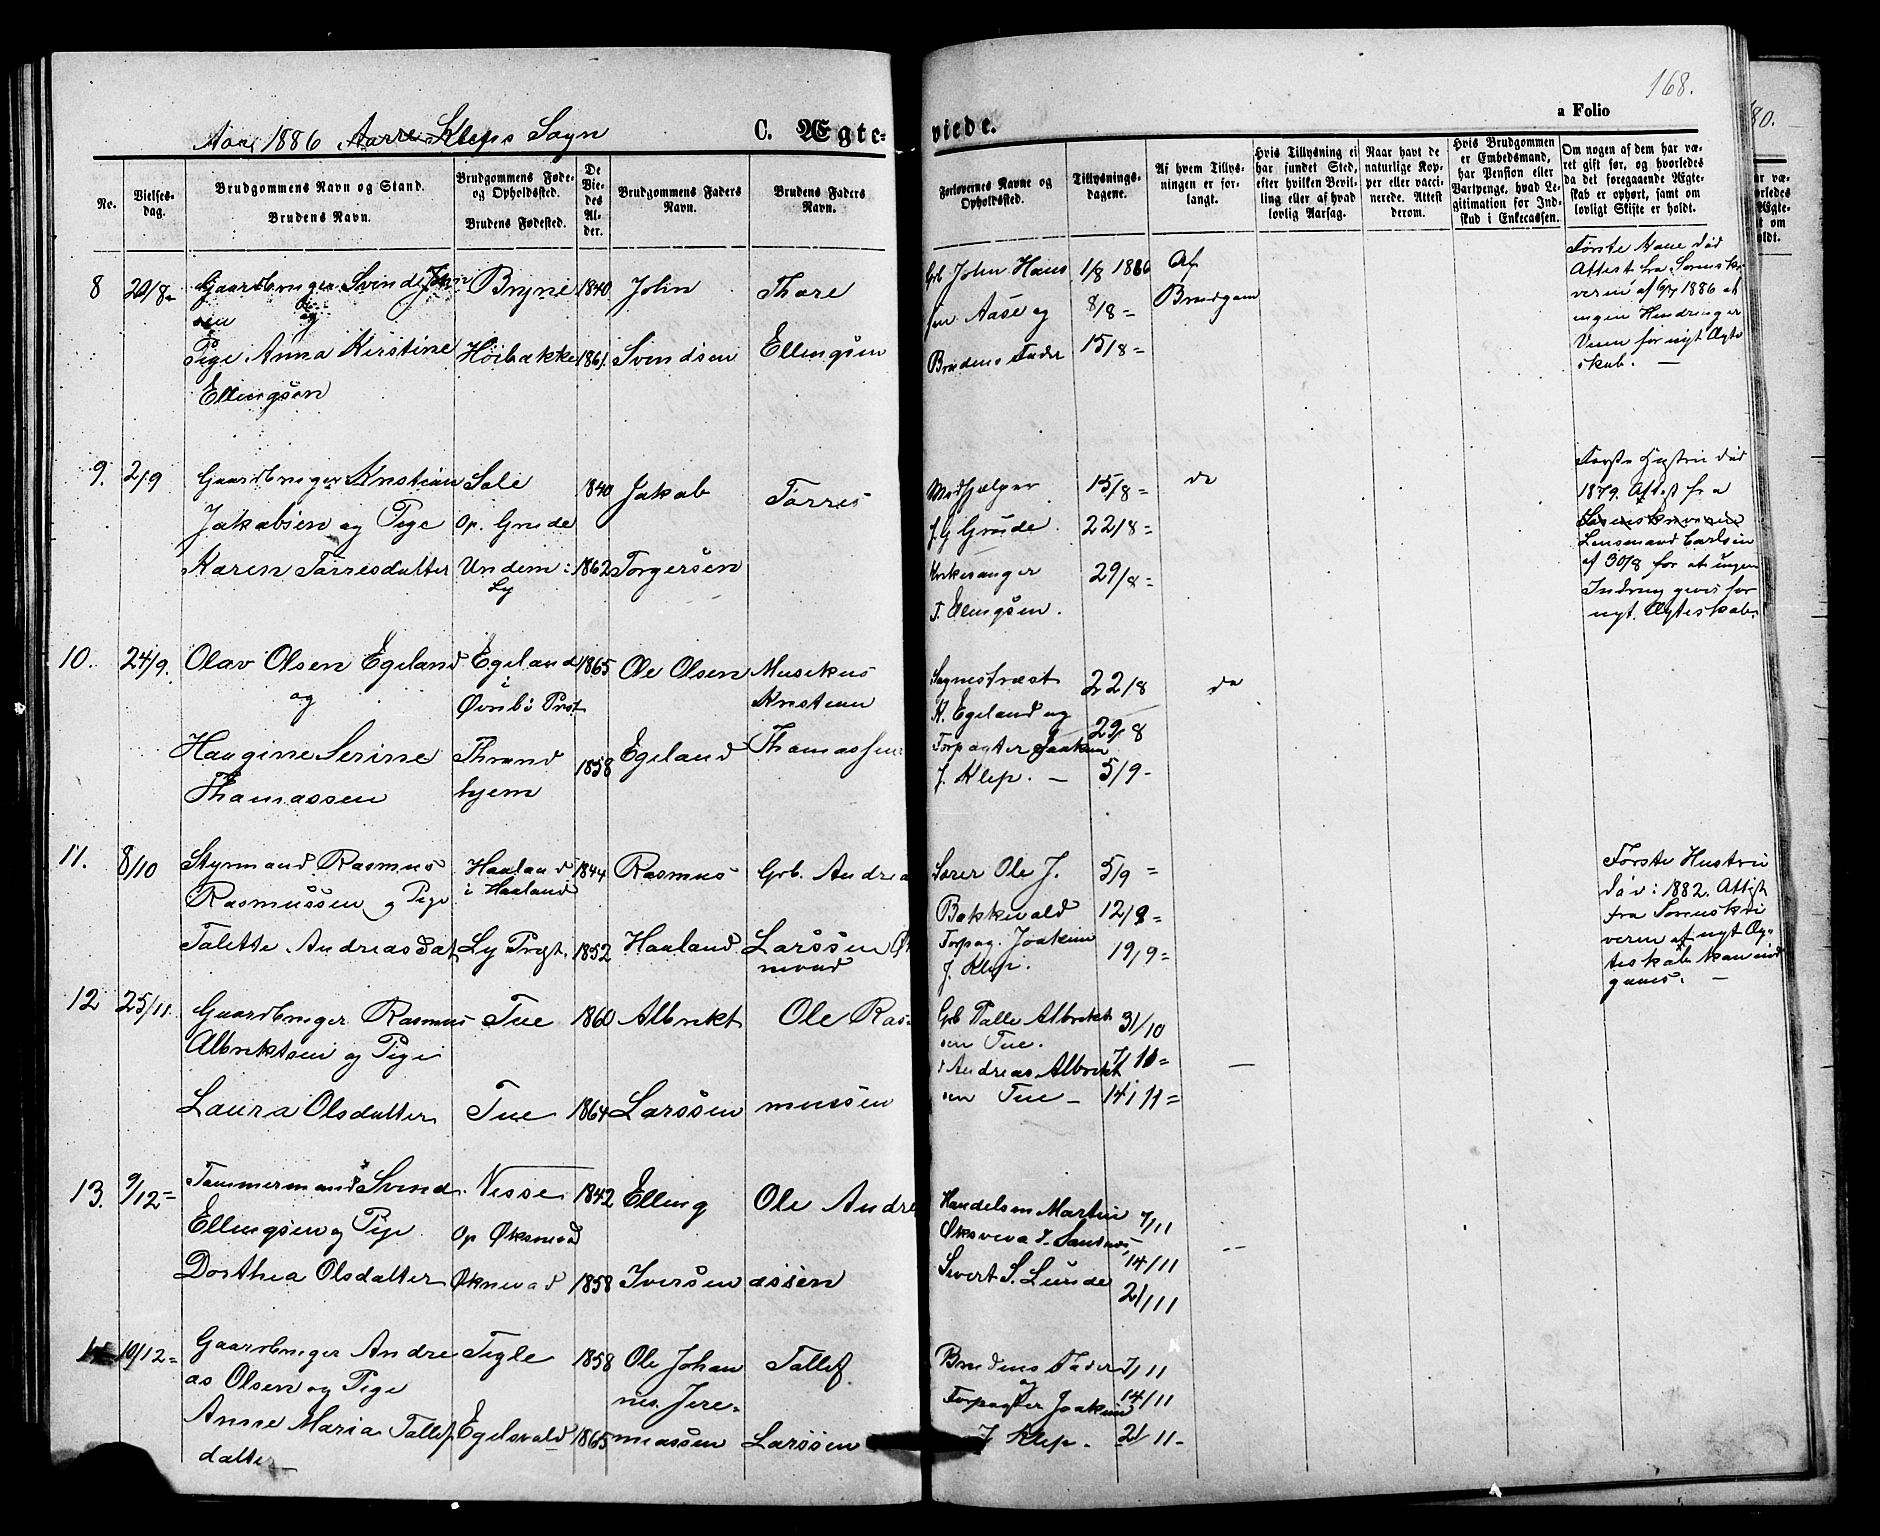 168.
Aar 1886 Kleps Sogn
C. Ægteviede.
a Folio
No.
Vielses-
dag.
Brudgommens Navn og Stand.
Brudens Navn.
Brudgommens Føde-
og Opholdssted.
Brudens Fødested.
De
Vie-
des
Al-
der.
Brudgommens Faders
Navn.
Brudens Faders
Navn.
Forlovernes Navne og
Opholdssted.
Tillysnings-
dagene.
Af hvem Tillys-
ningen er for-
langt.
Hvis Tillysning ei
har fundet Sted,
efter hvilken Bevil-
ling eller af hvad
lovlig Aarsag.
Naar havt de
naturlige Kop-
per eller vacci-
nerede. Attest
derom.
Hvis Brudgommen
er Embedsmand,
har Pension eller
Vartpenge, hvad Le-
gitimation for Ind-
skud i Enkecassen.
Om nogen af dem har væ-
ret gift før, og hvorledes
da det foregaaende Ægte-
skab er ophørt, samt om
lovligt Skifte er holdt.
8 20/8 Gaardbruger Svend John
sen og
Pige Anna Kirstine
Ellingsen
Bryne 1840
Høibakke 1861
John
Svendsen
Thore
Ellingsen
Grb John Hans
sen Aase og
Brudens Fader
1/8 1886
8/8 =
15/8 =
Af
Brudgom
Første Kone død
Attest fra Sorensk
veren af 6/7 1886 at
ingen Hindringer
Veien for nyt Ægte
skab. —
9. 2/9 Gaardbruger Kristian
Jakobsen og Pige
Karen Tørresdatter
Sole
Op. Grude
Undem:
Ly
1840
1862
Jakob
Torgersen
Tørres
Medhjælper
J. G Grude.
Kirkesanger
T. Ellingsen.
15/8 =
22/8 =
29/8 =
do
Første Hustru død
1879. Attest fra
Lensmand Carlsen
af 30/8 for at ingen
nyt Ægteskab.
10. 24/9. Olav Olsen Egeland
og
Haugine Serine
Thomassen
Egeland
i
Øvrebø Prst
Thrond
hjem
1865
1858
Ole Olsen
Egeland
Musikus
Kristian
Thomassen
Sognepræst
K. Egeland og
Forpagter Joakim
J. Klep. —
22/8
29/8
5/9 -
do
11. 8/10 Styrmand Rasmus
Rasmussen og Pige
Talette Andreasdat
Haaland
i Haaland
Ly Prgt.
1844
1852
Rasmus
Haaland
Grb. Andrea
Larssen Øk
nevad
Sører Ole J.
Bakkevald
Forpag. Joakim
J. Klep.
5/9 =
12/9 =
19/9 =
Første Hustru
død: 1882. Attest
fra Sorenskri
veren at nyt Æg-
teskab kan ind
gaaes. —
12 25/11. Gaardbruger Rasmus
Albriktsen og Pige
Laura Olsdatter
Tue 1860
Tue 1864
Albrikt
Larssen
Ole Ras
mussen
Grb Talle Albrikt
sen Tue.
Andreas Albrikt
sen Tue —
31/10
7/11 =
14/11 =
—
13. 9/12 = Tømmermand Svend
Ellingsen og Pige
Dorthea Olsdatter
Nesse
Op Øksnevad
Øknevad
1842
1858
Elling
Iversen
Ole Andre
assen
Handelsm Martin
Sivert S. Lunde
7/11
14/11
21/11
10/12 = Gaardbruger Andre
as Olsen og Pige
Anne Maria Tallef
datter
Tigle 1858
Egelsvald 1865
Ole Johan
nes Jere-
miassen
Tallef
Larssen
Brudens Fader
og
Forpagter Joakim
J Klep. —
7/11
14/11
21/11 -